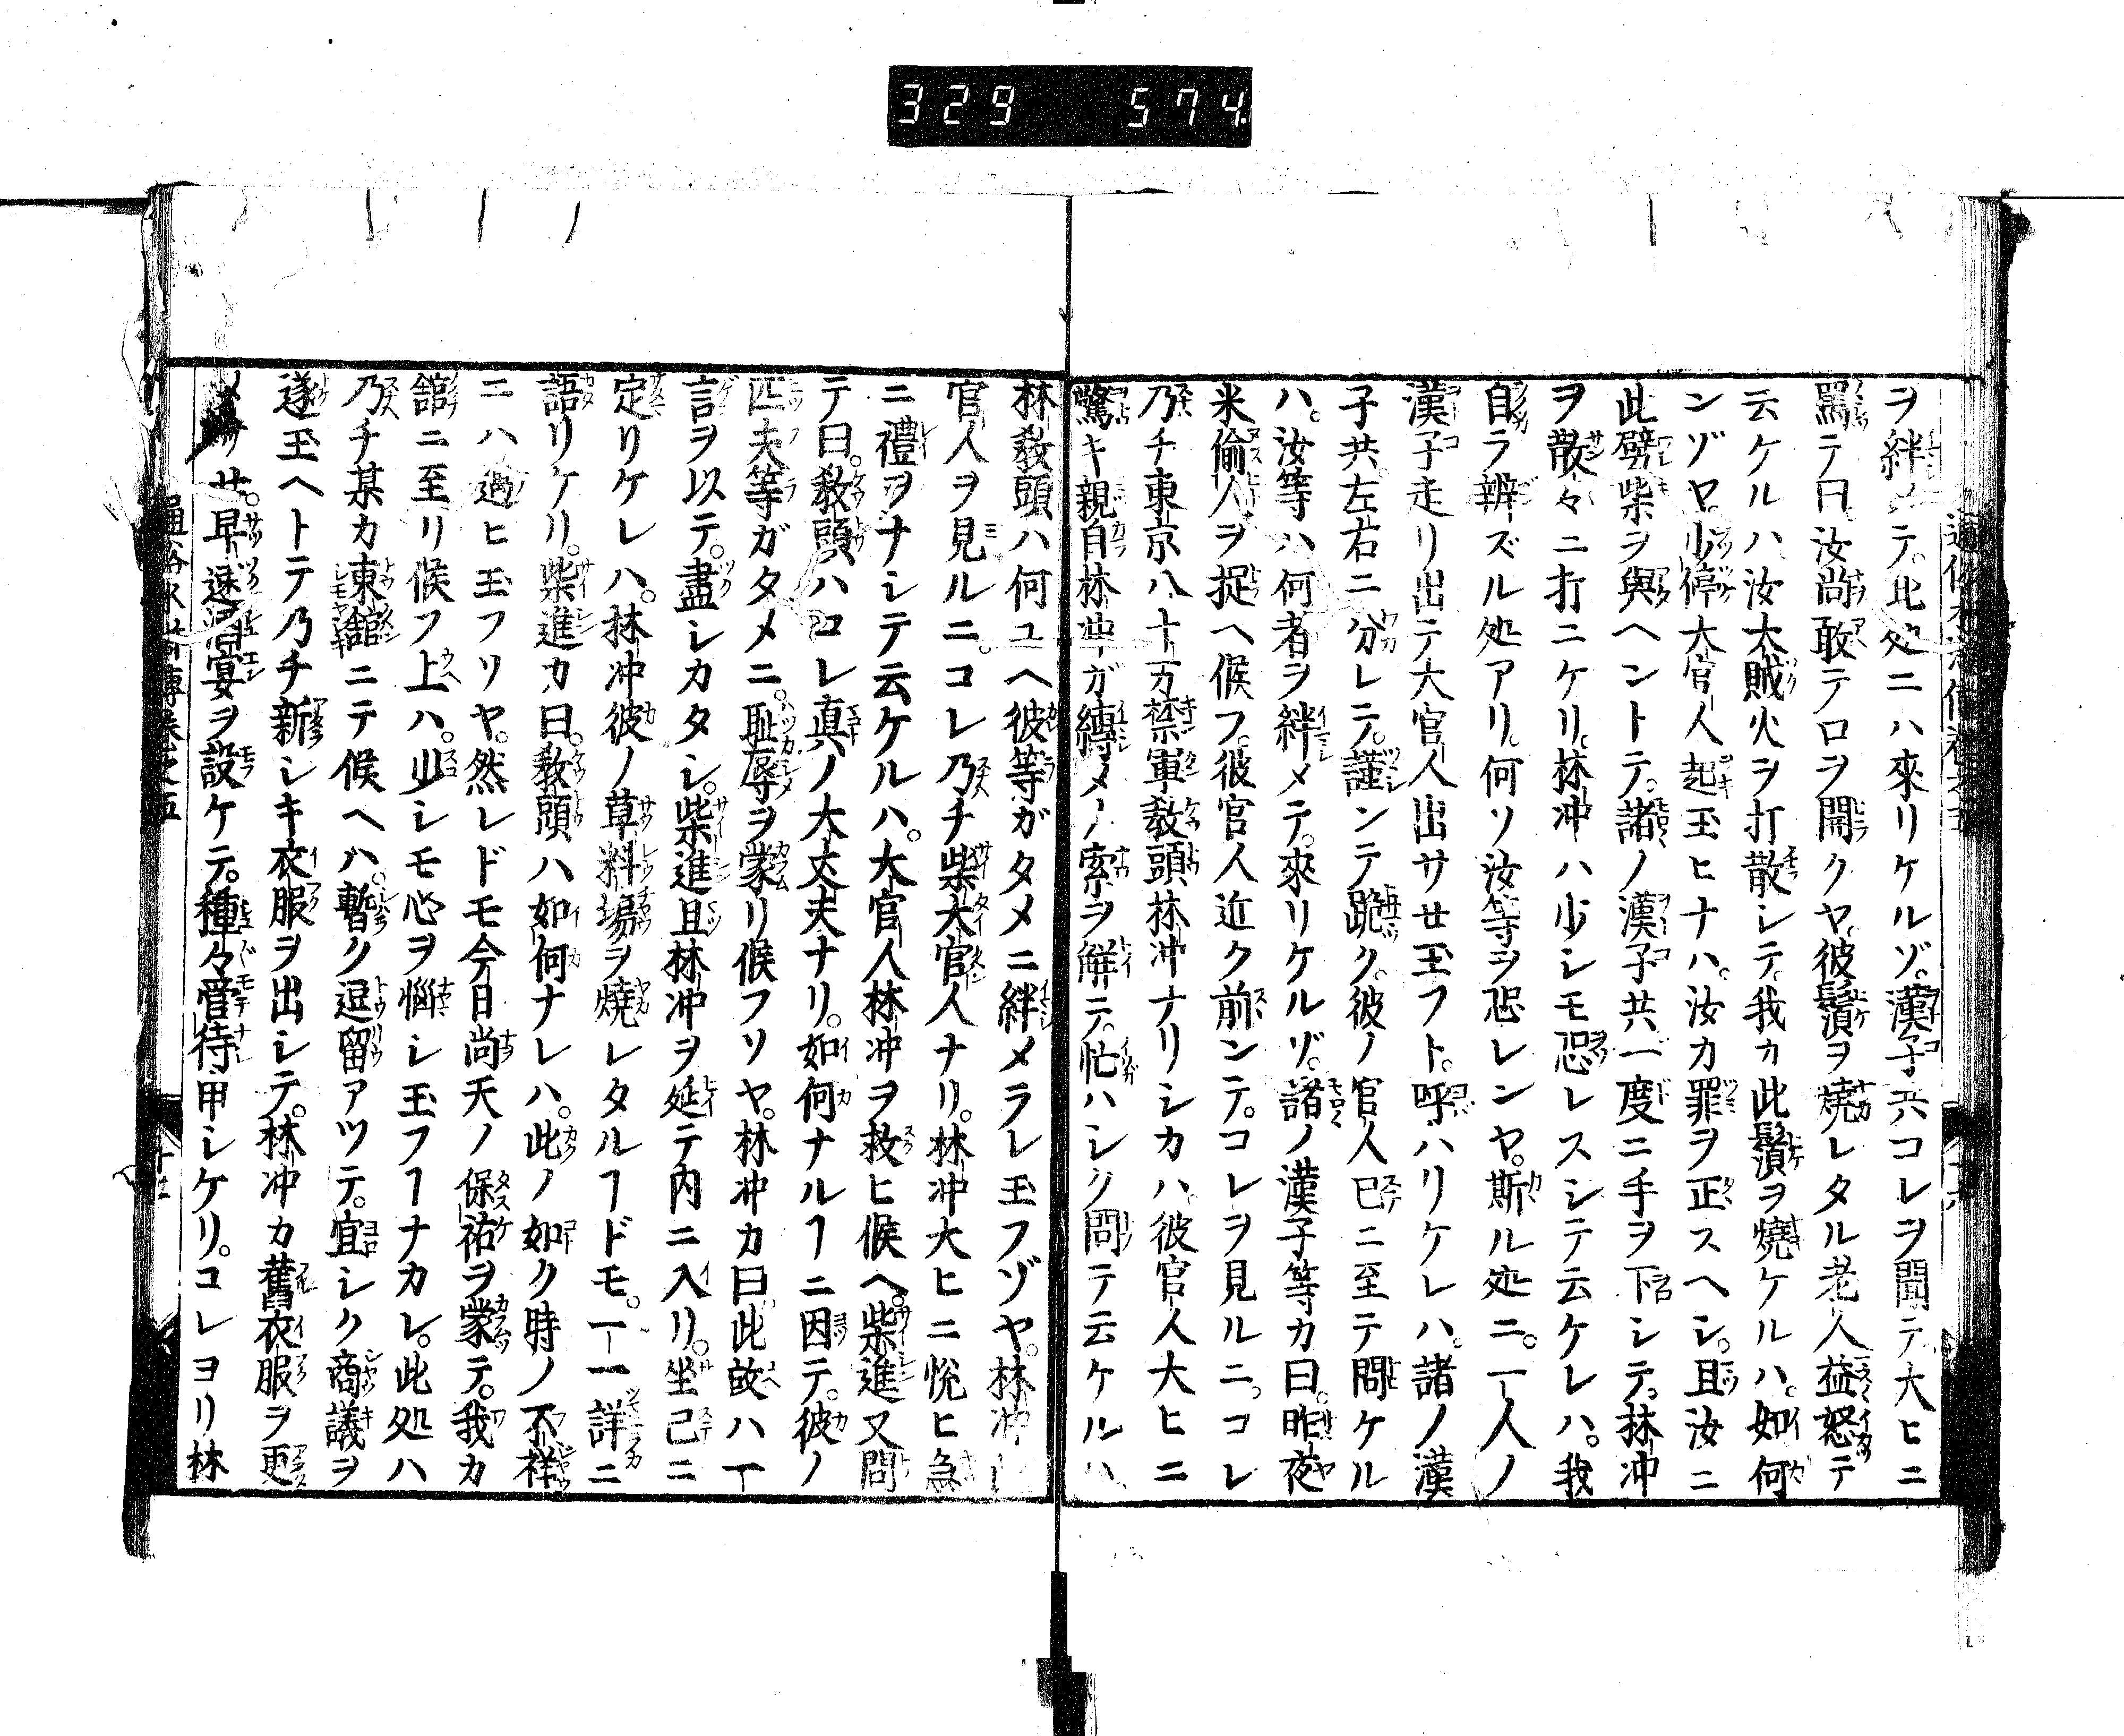 329 574
ヲ絆メテ此処ニハ來リケルゾ。漢子共コレヲ聞テ大ヒニ
罵テ曰汝尚敢テロヲ開クヤ彼鬚ヲ燒レタル老人益怒テ
云ケルハ汝太賊火ヲ打散シテ我カ此鬚ヲ燒ケルハ。如何
ンゾヤ少停大官人起玉ヒナハ。汝カ罪ヲ正スヘシ。且汝ニ
此劈柴ヲ與ヘントテ。諸ノ漢子共一度ニ手ヲ下シテ。林冲
ヲ散々ニ打ニケリ。林冲ハ少シモ恐レスシテ云ケレハ。我
自ラ辨ズル処アリ。何ソ汝等ヲ恐レンヤ。斯ル処ニ。一人ノ
漢子走リ出テ大官人出サセ玉フト。呼ハリケレハ。諸ノ漢
子共。左右ニ分レテ。謹ンテ跪ク。彼ノ官人已ニ至テ問ケル
ハ。汝等ハ何者ヲ絆メテ。來リケルゾ。諸ノ漢子等カ曰。昨夜
米偷人ヲ捉ヘ候フ。彼官人近ク前ンテ。コレヲ見ルニ。コレ
乃チ東京八十万禁軍敎頭林冲ナリシカハ。彼官人大ヒニ
驚キ親自林冲ガ縛メノ索ヲ解テ。忙ハシク問テ云ケルハ
林敎頭ハ何ユヘ彼等ガタメニ絆メラレ玉フゾヤ。林冲
官人ヲ見ルニ。コレ乃チ柴大官人ナリ。林冲大ヒニ悦ヒ急
ニ禮ヲナシテ云ケルハ。大官人林冲ヲ救ヒ候ヘ。柴進又問
テ曰。敎頭ハコレ真ノ大丈夫ナリ。如何ナルヿニ因テ。彼ノ
匹夫等ガタメニ。耻辱ヲ蒙リ候フソヤ。林冲カ曰此故ハ一
言ヲ以テ。盡シカタシ。柴進且林冲ヲ延テ内ニ入リ。坐已ニ
定リケレハ。林冲彼ノ草料場ヲ燒レタルヿドモ。一一詳ニ
語リケリ。柴進カ曰。敎頭ハ如何ナレハ。此ノ如ク時ノ不祥
ニハ過ヒ玉フリヤ。然レドモ今日尚天ノ保祐ヲ蒙テ。我カ
舘ニ至リ候フ上ハ。少シモ心ヲ惱シ玉フヿナカレ。此処ハ
乃チ某カ東舘ニテ候ヘハ。暫ク逗留アツテ。宜シク商議ヲ
遂玉ヘトテ乃チ新シキ衣服ヲ出シテ。林冲カ舊衣服ヲ更
サ。早速酒宴ヲ設ケテ。種々管待申シケリ。コレヨリ林